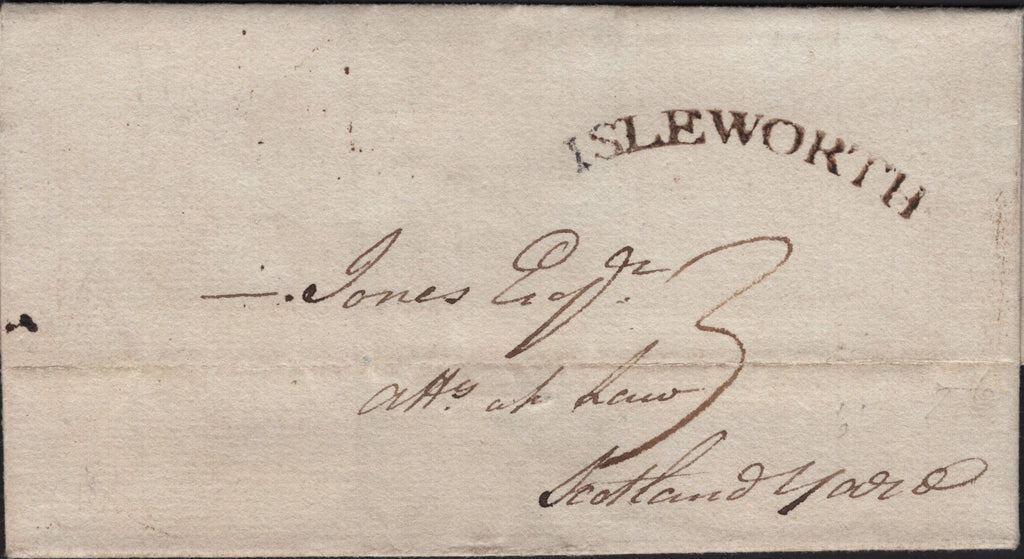 ISLEWORTH
—. Jones Esqr.
3
atty. at Law
Scotland Yard
76